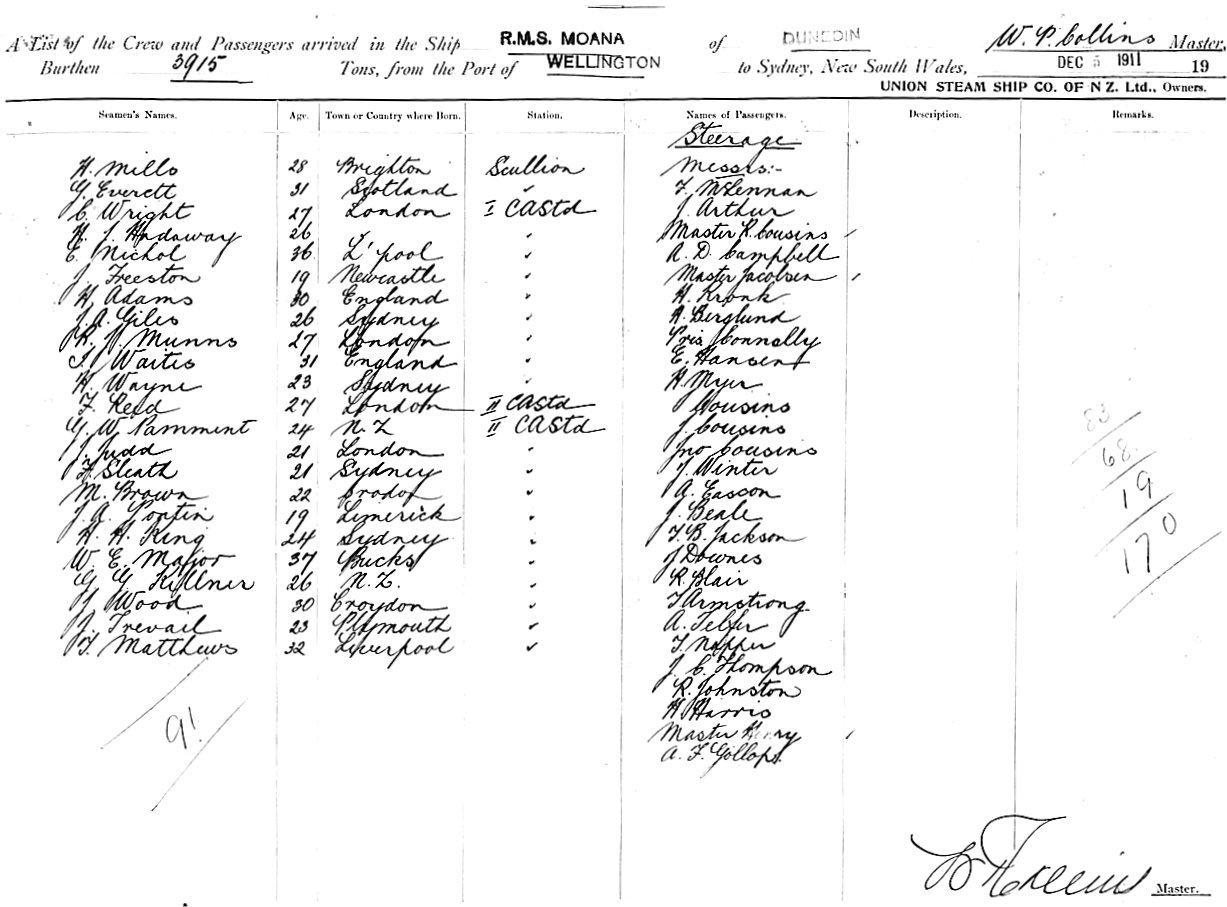 A List of the Crew and Passengers arrived in the Ship R.M.S. MOANA of DUNEDIN W. P. Collins Master,
Burthen 3915 Tons, from the Port of WELLINGTON to Sydney, New South Wales, DEC 5 1911 19
UNION STEAM SHIP CO. OF N Z. Ltd., Owners.
Seamen's Names. Age. Town or Country where Born. Station. Names of Passengers. Description. Remarks.
Steerage
H. Mills 28 Brighton Scullion Messrs:-
G. Everett 31 Scotland " F. McLennan
C. Wright 27 London I CAStd J. Arthur
H. J. Hadaway 26 " " Master R. Cousins
E. Nichol 36 L'pool " A. D. Campbell
J. Freeston 19 Newcastle " Master Jacobsen
H. Adams 30 England " H. Kronk
J. A. Giles 26 Sydney " A. Berglund
R. J. Munns 27 London " Connally
T. Waites 31 England " E. Hansen
H. Wayne 23 Sydney " H. Myer
F. Reed 27 London II CAStd Cousins
G. W. Pamment 24 N. Z II CAStd J. Cousins
J. Judd 21 London " Jno Cousins
F. Sleath 21 Sydney " J. Winter
M. Brown 22 " A. Eascon
J. A. Pontin 19 Limerick " J. Beale
H. H. King 24 Sydney " T. B. Jackson
W. E. Major 37 Bucks " J Downes
G. G. Killner 26 N. Z. " R. Blair
J Wood 30 Croydon " T Armstrong
J. Trevail 23 Plymouth " A. Telfer
T. Matthews 32 Liverpool " T. Napper
J. C. Thompson
R. Johnston
H Harris
Master Henry
A. F. Gollop
91
83
68
19
170
Master.